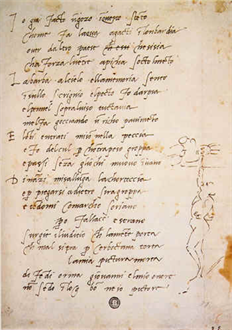 I o gia facto un gozo in questo stento
chome fa lacqua agacti in lombardia
over daltro paese che si che sia
cha forza luentre apicha socto lmento
L a barba alcielo ella memoria sento
in sullo scrignio elpecto fo darpia
elpennel sopraluiso tuctauia
melfa gocciando un riccho pauimento
E lombi entrati mi son nella peccia
e fo delcul p chotrapeso groppa
e passi seza gliochi muouo inuano
D inanzi misallunga lachorteccia
e p piegarsi adietro siragroppa
e tedomi comarcho soriano
po fallace e strano
surgie iliuditio ch lamente porta
ch mal si tra p cerbottana torta
la mia pictura morta
difedi orma giouanni elmio onore
bo ne io pictore